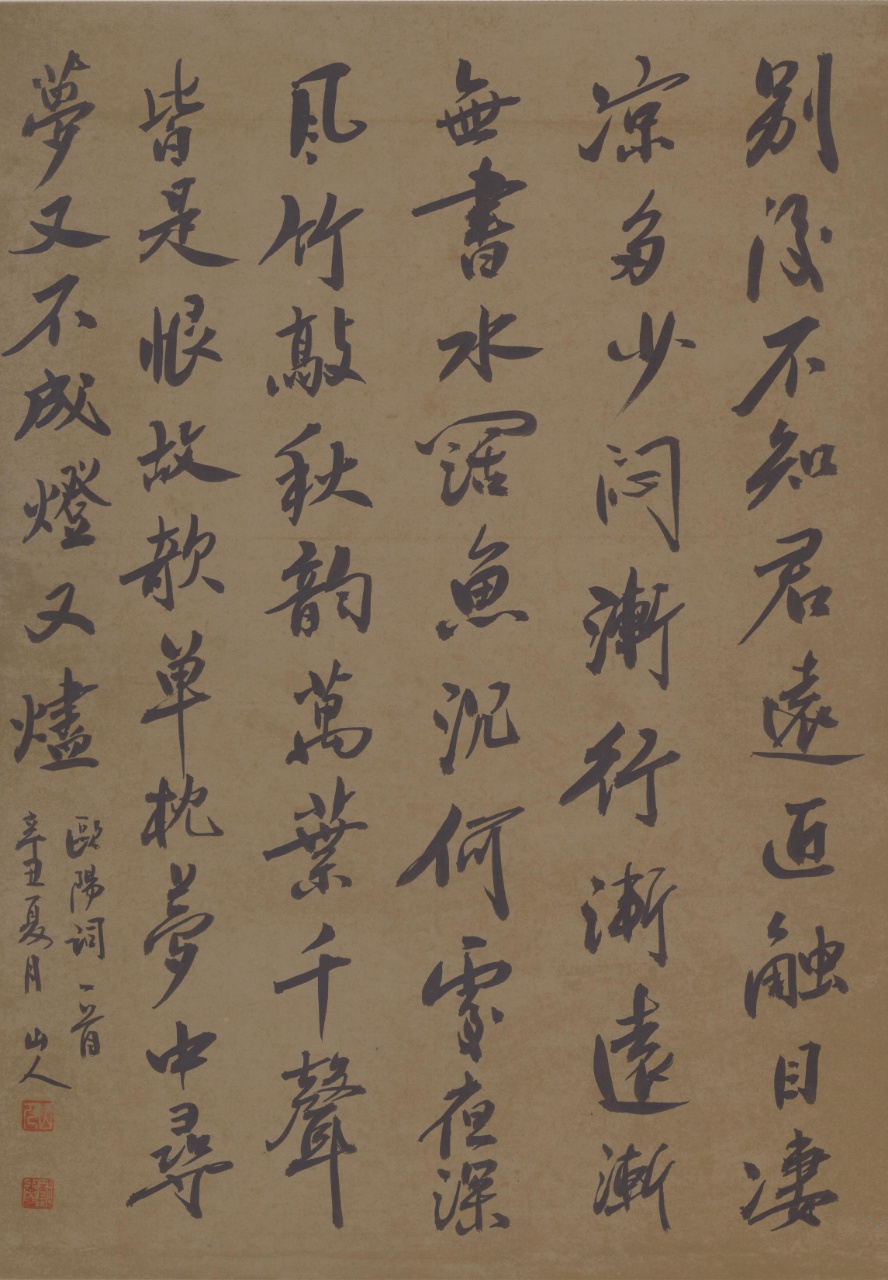 别後不知君遠近触目凄
凉多少闷漸行漸遠漸
無書水阔魚沉何處夜深
風竹敲秋韵萬葉千聲
皆是恨故欹单枕夢中尋
夢又不成燈又燼
歐陽词一首
辛丑夏月 山人